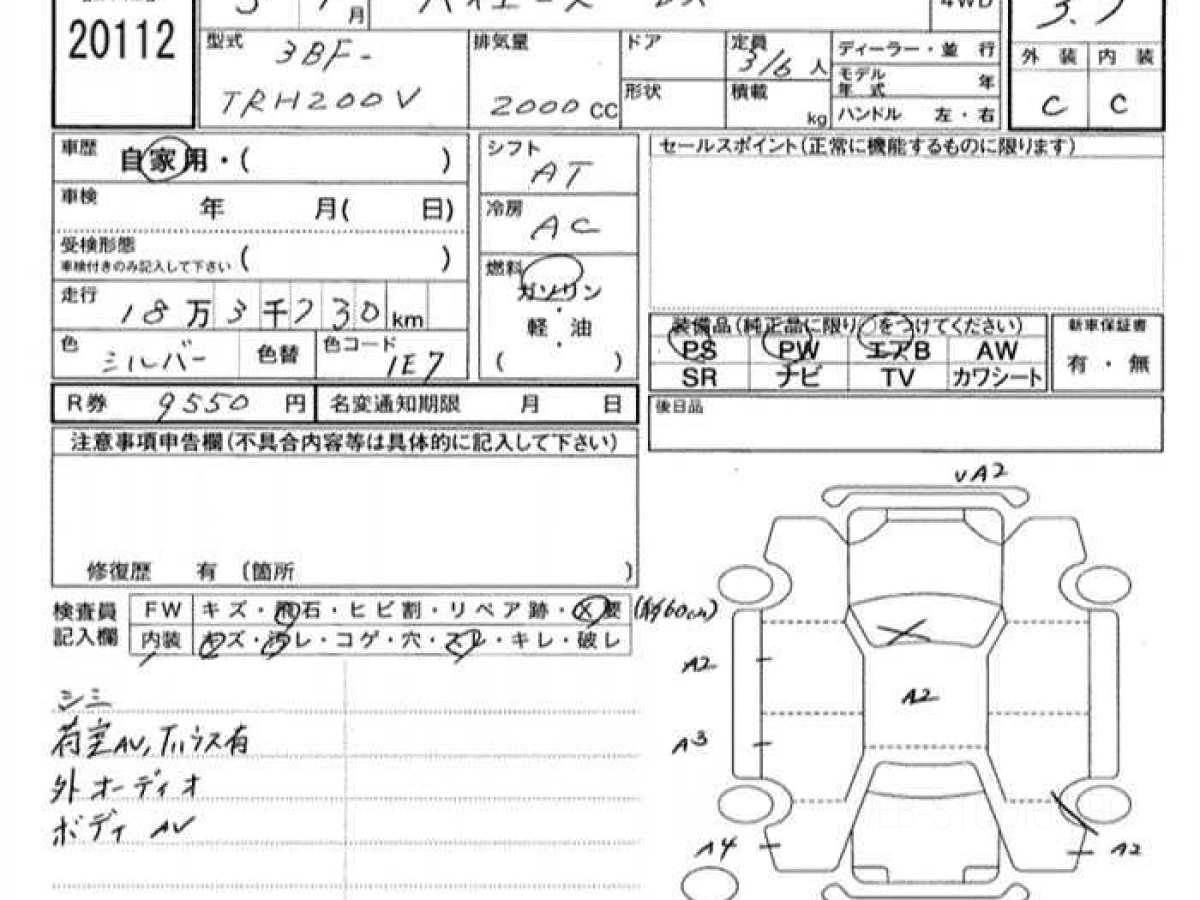 20112
月
ハイエース DX
4WD
3.5
型式 3BF-
TRH200V
排気量 2000 CC
ドア
形状
定員 3/6 人
積載 kg
ディーラー・並 行
モデル年式 年
ハンドル 左・右
外 装 内 装
C C
車歴 自家用・( )
車検 年 月( 日)
受検形態 ( )
車検付きのみ記入して下さい
走行 18万3千730 km
色 シルバー 色替 色コード 1E7
シフト AT
冷房 AC
燃料 ガソリン
・
軽 油
・
( )
セールスポイント(正常に機能するものに限ります)
装備品(純正品に限り○をつけてください)
PS PW エアB AW
SR ナビ TV カワシート
新車保証書
有 ・ 無
R券 9550 円 名変通知期限 月 日
後日品
注意事項申告欄(不具合内容等は具体的に記入して下さい)
修復歴 有 (箇所 )
検査員
記入欄
FW キズ・飛石・ヒビ割・リペア跡・X要 (約60cm)
内装 キズ・汚レ・コゲ・穴・スレ・キレ・破レ
シミ
荷室AV,
外オーディオ
ボディ AV
A2
A2
A2
A3
A4
A2